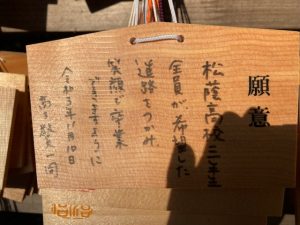 願意
松蔭高校三年生
全員が希望した
進路をつかみ、
笑顔で卒業
できますように
令和3年1月10日